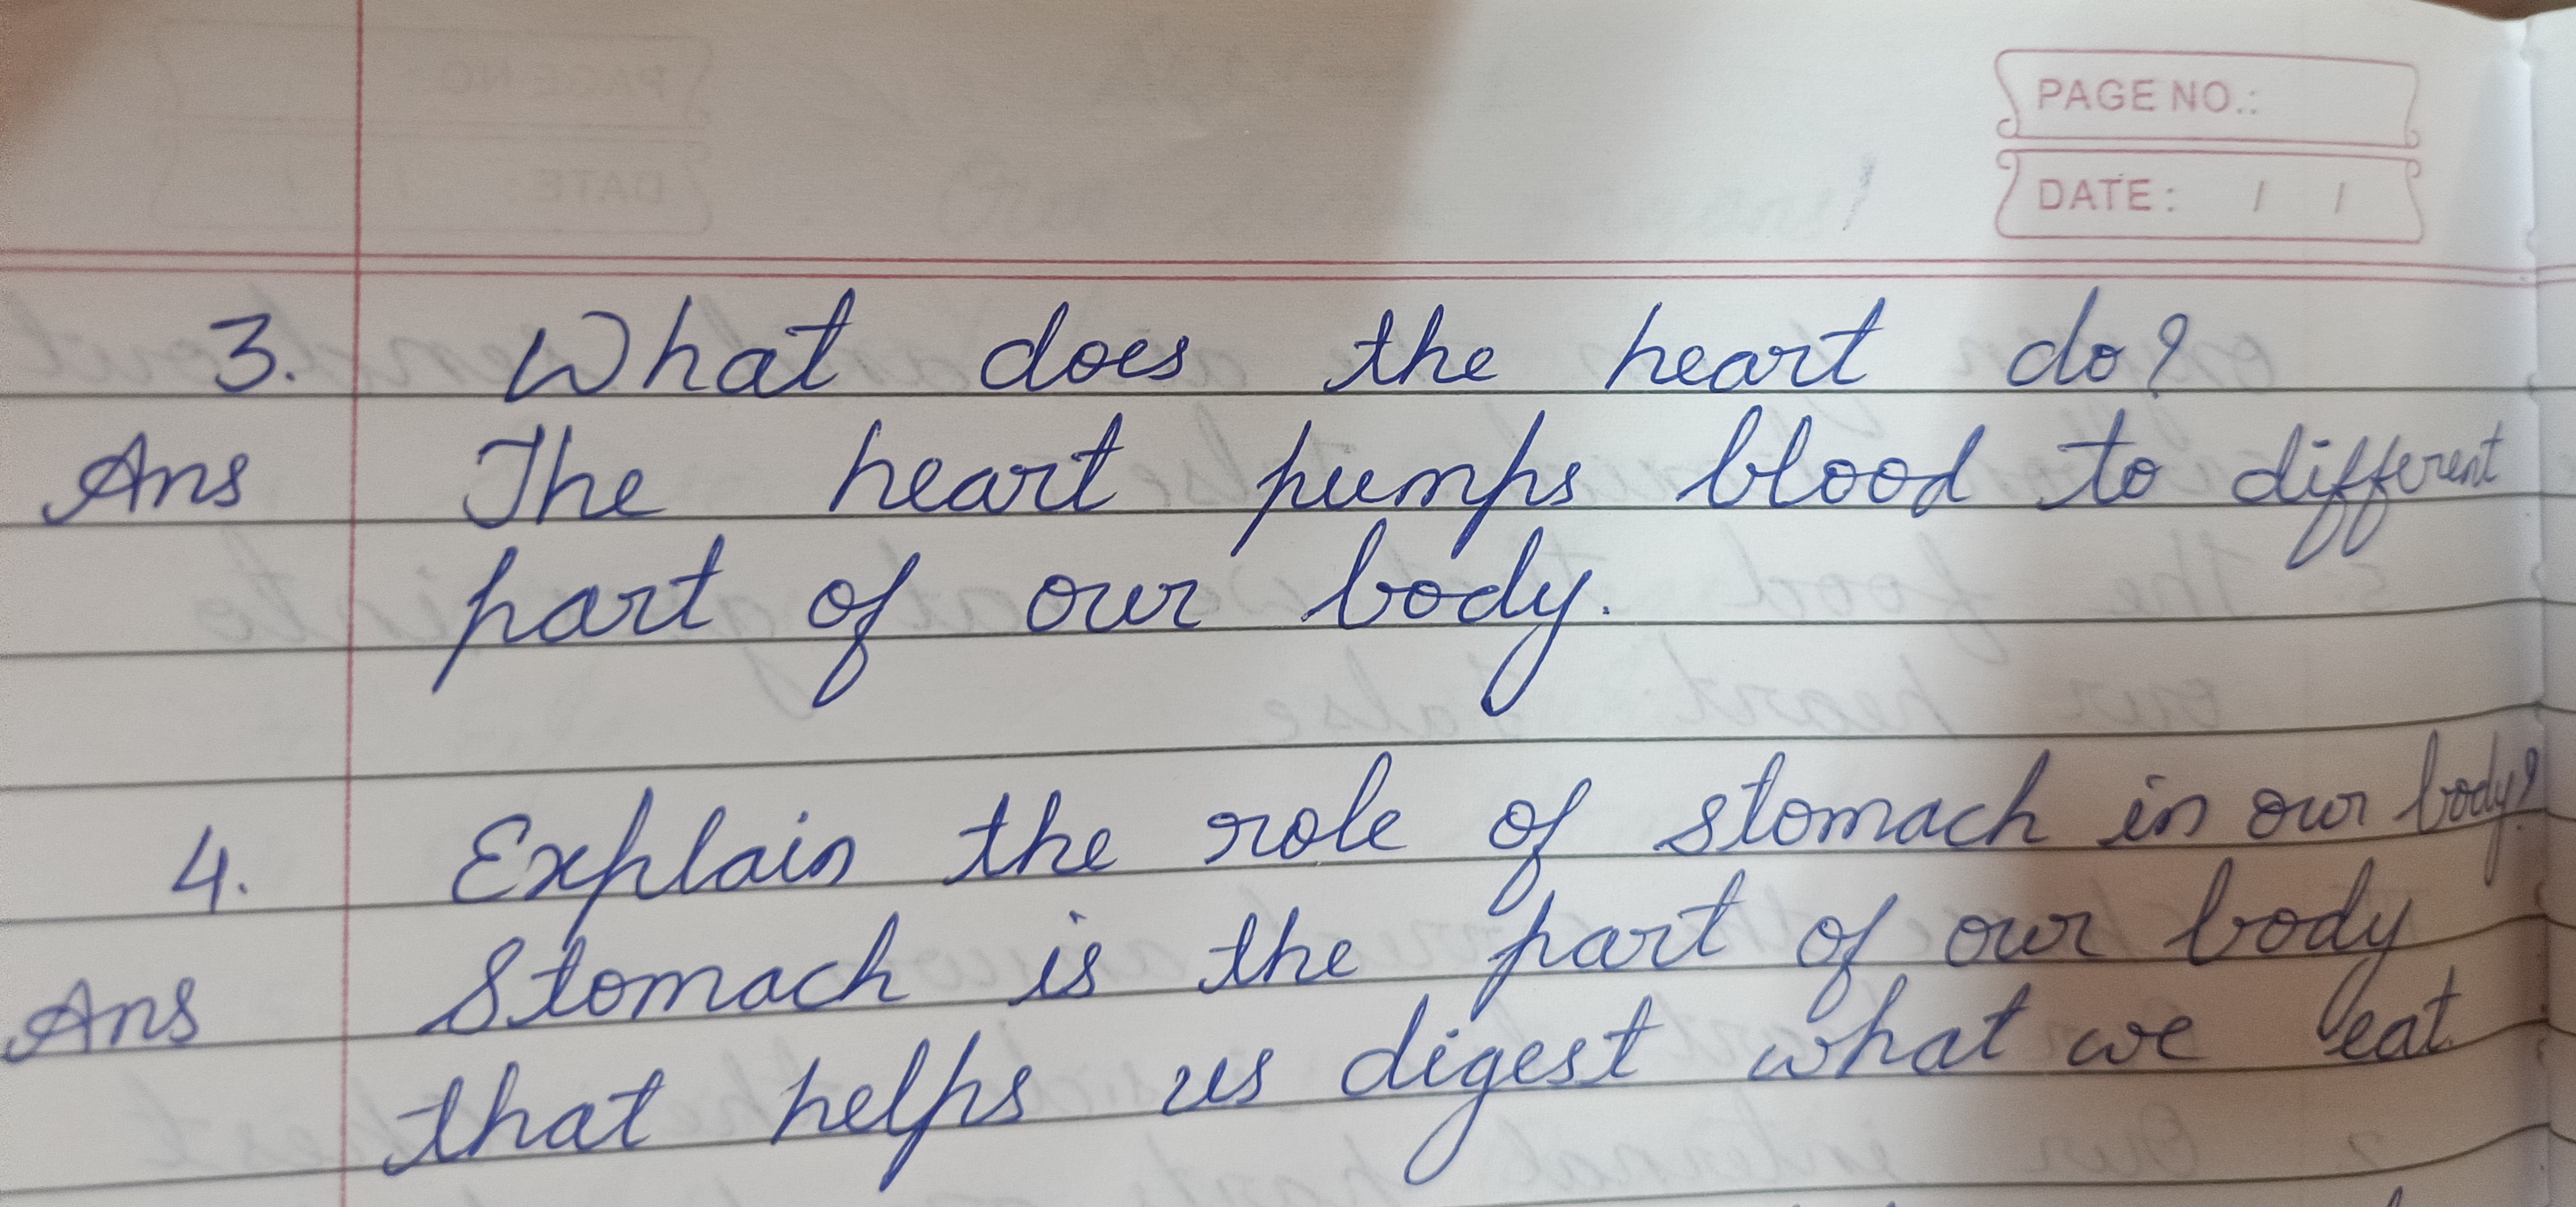 PAGE NO.:
DATE: / /
3. What does the heart do?
Ans The heart pumps blood to different
part of our body.
4. Explain the role of stomach in our body?
Ans Stomach is the part of our body
that helps us digest what we eat.